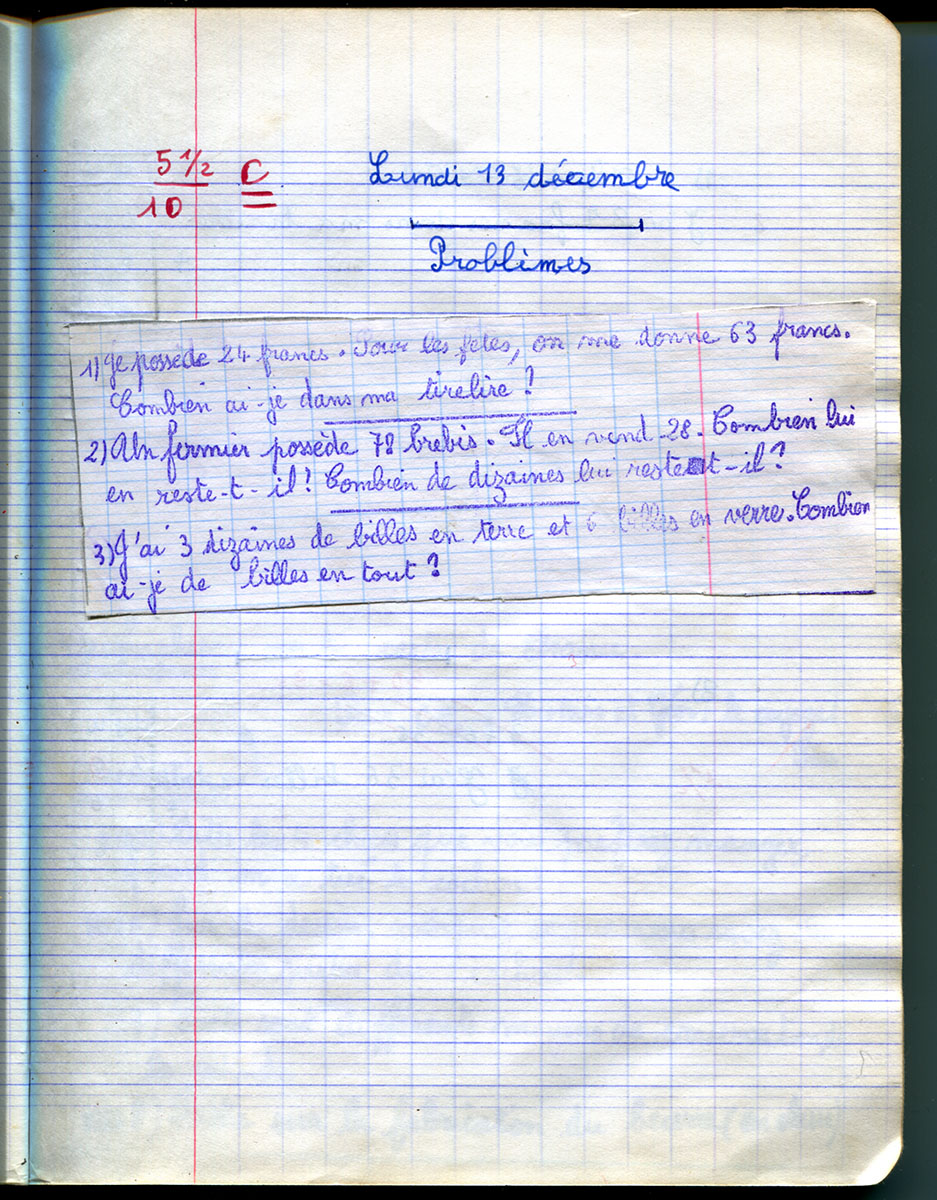 5 1/2
10
C
Lundi 13 décembre
Problèmes
1) Je possède 24 francs. Pour les fêtes, on me donne 63 francs.
Combien ai-je dans ma tirelire ?
2) Un fermier possède 78 brebis. Il en vend 28. Combien lui
en reste-t-il ! Combien de dizaines lui reste-t-il ?
3) J'ai 3 dizaines de billes en terre et 6 billes en verre. Combien
ai-je de billes en tout ?